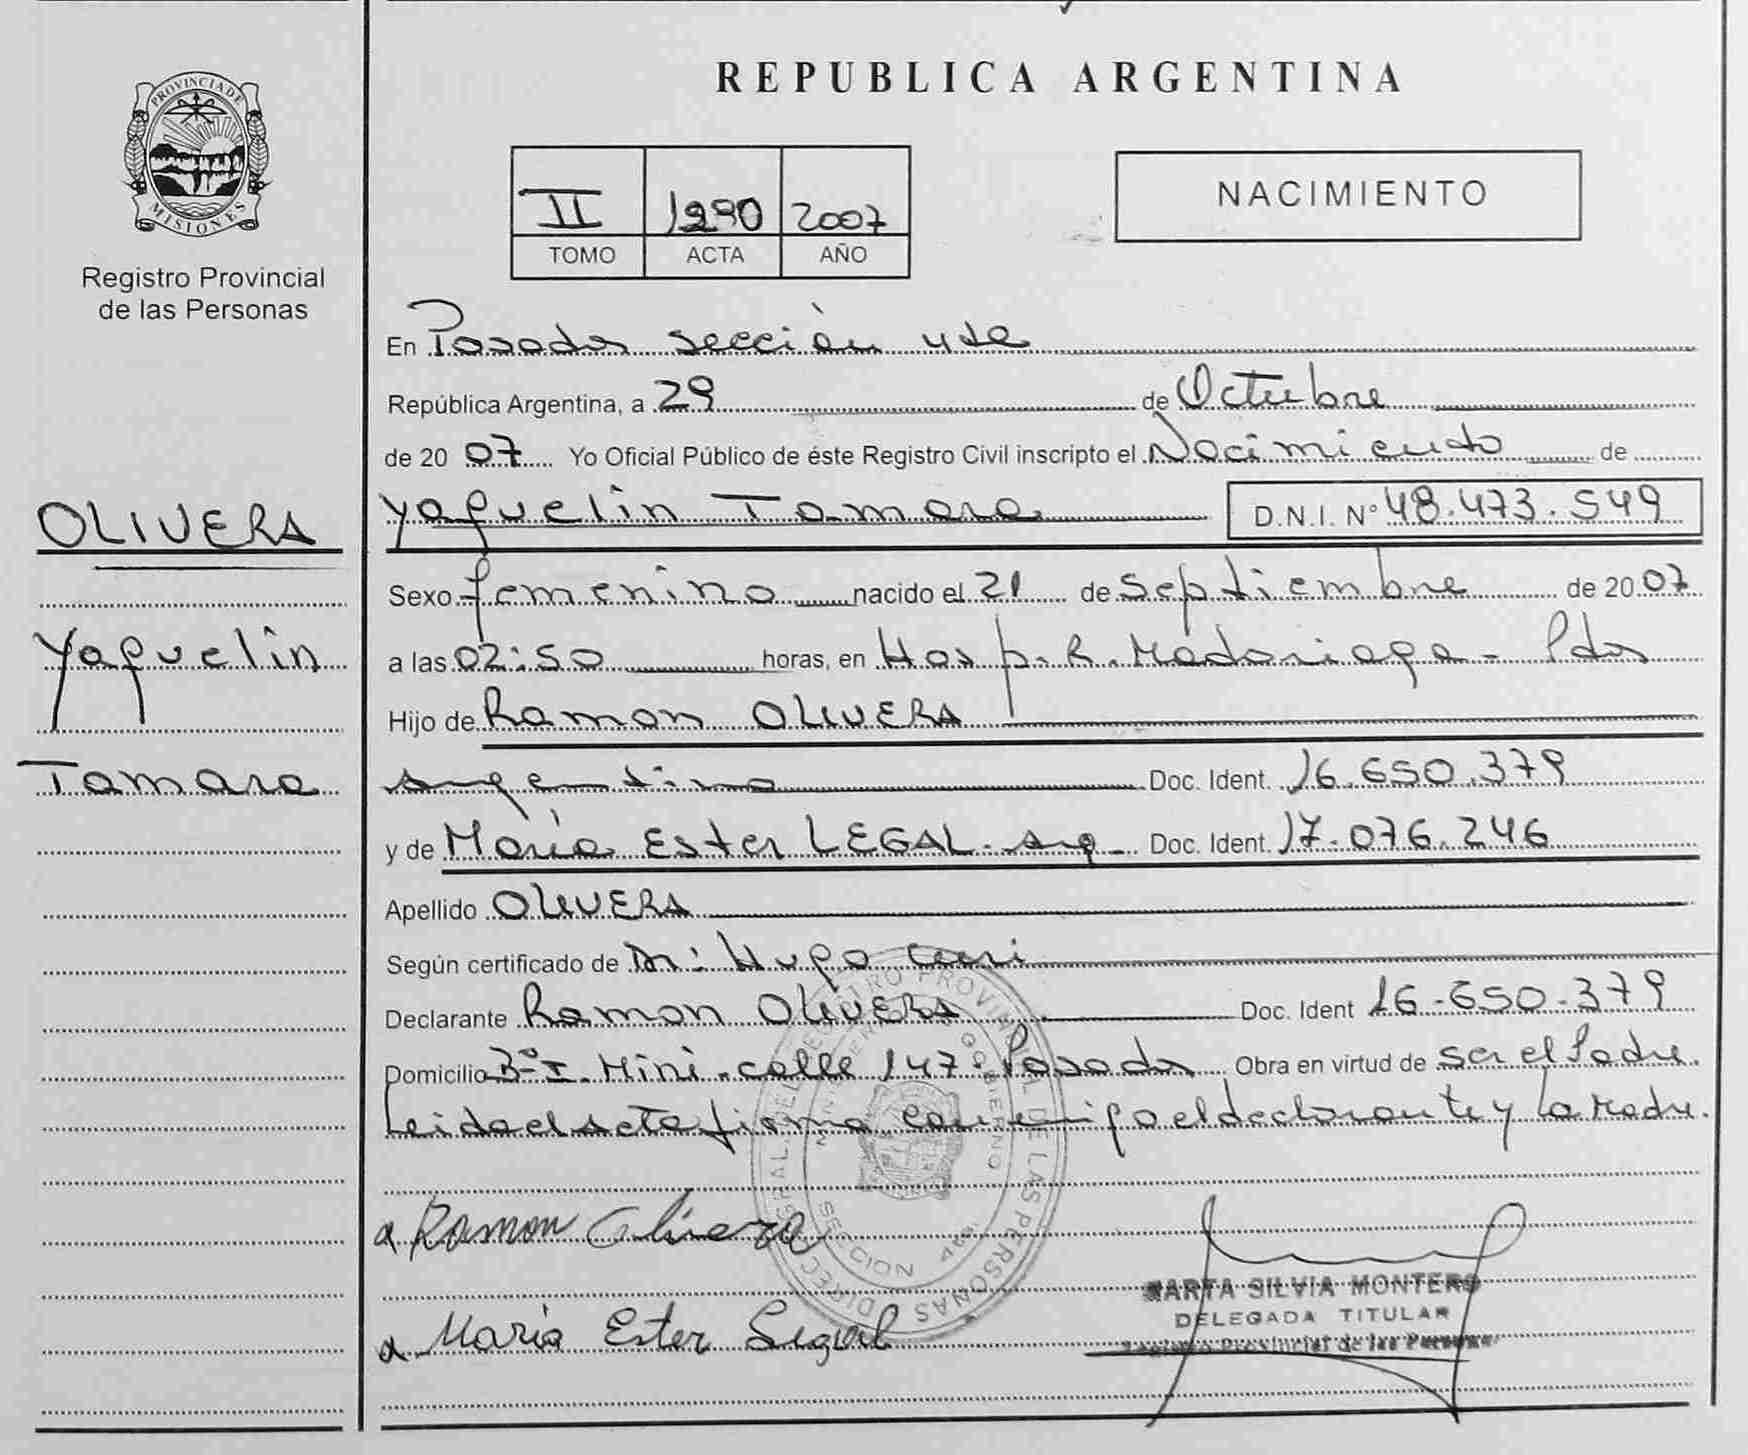 PROVINCIA DE
MISIONES
Registro Provincial
de las Personas
OLIVERA
Yaquelin
Tamara
REPUBLICA ARGENTINA
II 1290 2007
TOMO ACTA AÑO
NACIMIENTO
En Posadas sección 4ta
República Argentina, a 29 de Octubre
de 20 07 Yo Oficial Público de éste Registro Civil inscripto el Nacimiento de
Yaquelin Tamara D.N.I. Nº 48.473.549
Sexo femenino nacido el 21 de Septiembre de 20 07
a las 02:50 horas, en Hosp. R. Madariaga - Pdas
Hijo de Ramon OLIVERA
argentino Doc. Ident. 16.650.379
y de María Ester LEGAL - arg - Doc. Ident. 17.076.246
Apellido OLIVERA
Según certificado de Dr: Hugo
Declarante Ramon OLIVERA Doc. Ident 16-650-379
Domicilio Bº I. Mini - calle 147 - Posadas Obra en virtud de ser el Padre.
Leida el acta firma conmigo el declarante y la Madre.
Ramon Olivera
María Ester
MARTA SILVIA MONTERO
DELEGADA TITULAR
Registro Provincial de las Personas
DIRECC REGISTRO PROVINCIAL DE LAS PERSONAS
GOBIERNO
SECCION 4ta